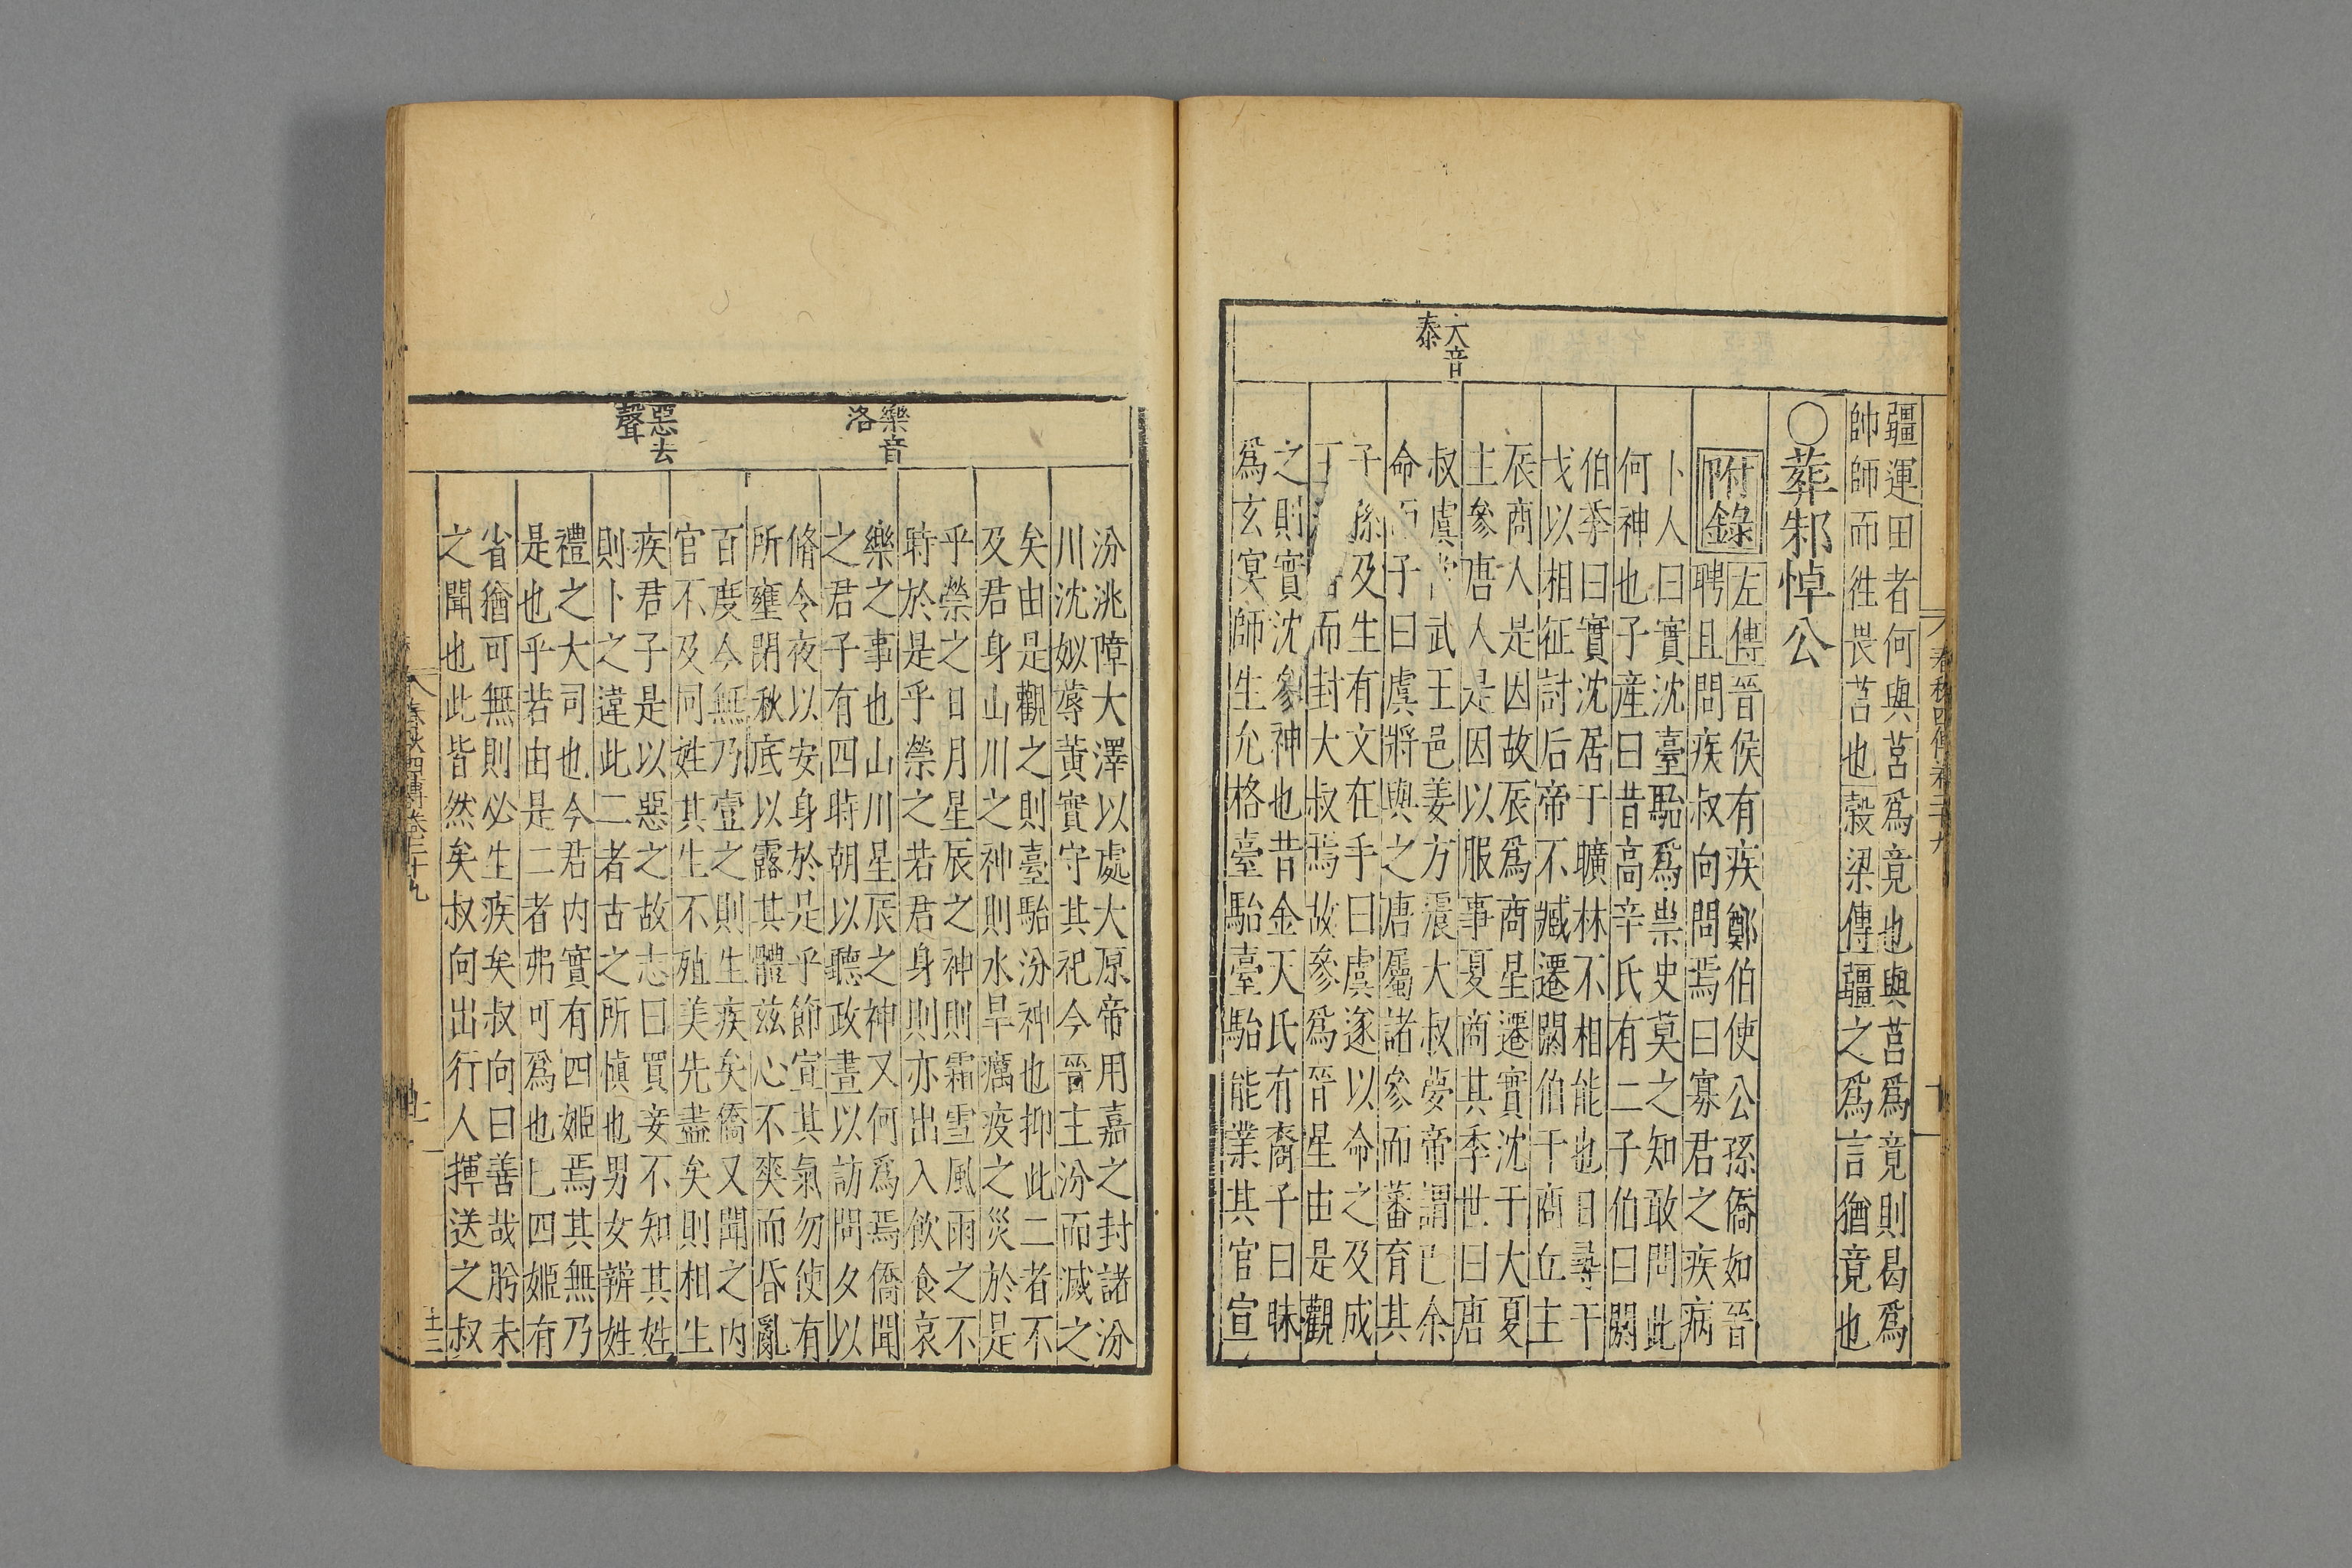 春秋四傳卷二十九
疆運田者何與莒為竟也與莒為竟則曷為
帥師而徃畏莒也穀梁傳疆之為言猶竟也
○葬邾悼公
附錄
左傳晉侯有疾鄭伯使公孫僑如晉
聘且問疾叔向問焉曰寡君之疾病
卜人曰實沈臺駘爲祟史莫之知敢問此
何神也子産曰昔高辛氏有二子伯曰閼
伯季曰實沈居于曠林不相能也日尋干
戈以相征討后帝不臧遷閼伯于商丘主
辰商人是因故辰爲商星遷實沈于大夏
主參唐人是因以服事夏商其季世曰唐
大音
泰
叔虞武王邑姜方震大叔夢帝謂已余
命子曰虞將與之唐屬諸參而蕃育其
子孫及生有文在手曰虞遂以命之及成
王而封大叔焉故參爲晉星由是觀
之則實沈參神也昔金天氏有裔子曰昧
爲玄冥師生允格臺駘臺駘能業其官宣
汾洮障大澤以處大原帝用嘉之封諸汾
川沈姒蓐黃實守其祀今晉主汾而滅之
矣由是觀之則臺駘汾神也抑此二者不
及君身山川之神則水旱癘疫之災於是
乎禜之日月星辰之神則霜雪風雨之不
時於是乎禜之若君身則亦出入飲食哀
樂音
洛
樂之事也山川星辰之神又何爲焉僑聞
之君子有四時朝以聽政晝以訪問夕以
脩令夜以安身於是乎節宣其氣勿使有
所壅閉秋底以露其體兹心不爽而昏亂
百度今無乃壹之則生疾矣僑又聞之内
官不及同姓其生不殖美先盡矣則相生
惡去
聲
疾君子是以惡之故志曰買妾不知其姓
則卜之違此二者古之所慎也男女辨姓
禮之大司也今君内實有四姬焉其無乃
是也乎若由是二者弗可爲也已四姬有
省猶可無則必生疾矣叔向曰善哉肹未
之聞也此皆然矣叔向出行人揮送之叔
春秋四傳卷三十九